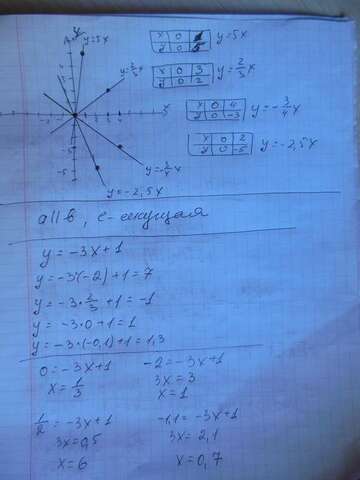 y=5x
x 0 1 y=5x
y 0 5
y=2/3x
x 0 3 y=2/3x
y 0 2
x
x 0 4 y=-3/4x
y 0 -3
x 0 2 y=-2,5x
y 0 -5
y=-3/4x
y=-2,5x
a||b, c-секущая
y=-3x+1
y=-3·(-2)+1=7
y=-3·2/3+1=-1
y=-3·0+1=1
y=-3·(-0,1)+1=1,3
0=-3x+1 -2=-3x+1
x=1/3 3x=3
x=1
1/2=-3x+1 -1,1=-3x+1
3x=0,5 3x=2,1
x=6 x=0,7